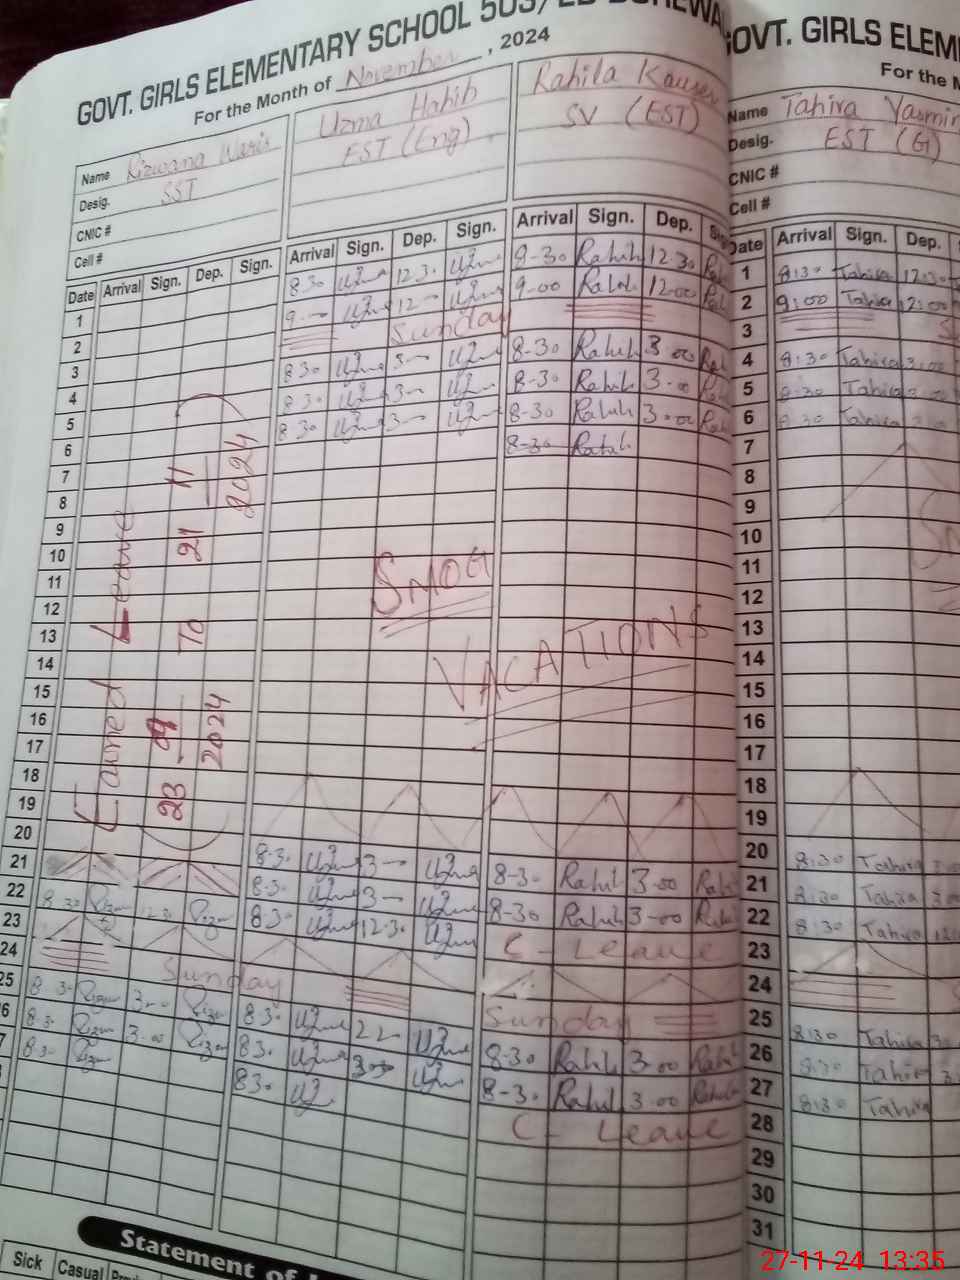 GOVT. GIRLS ELEMENTARY SCHOOL 503/
For the Month of November, 2024
Name Rizwana Waris
Desig. SST
CNIC #
Cell #
Uzma Habib
EST (Eng)
Rahila Kauser
SV (EST)
Date Arrival Sign. Dep. Sign. Arrival Sign. Dep. Sign. Arrival Sign. Dep.
1 8:30 Uzma 12:30 Uzma 9-30 Rahila 12-30
2 9- Uzma 12- Uzma 9-00 Rahila 12-00
3 Sunday
4 8:30 Uzma 3- Uzma 8-30 Rahila 3-00
5 8:30 Uzma 3- Uzma 8-30 Rahila 3-00
6 8:30 Uzma 3- Uzma 8-30 Rahila 3-00
7 8-30 Rahila
8
9
10
11
12
13
14
15
16
17
18
19
20
Earned Leave
(23 09 2024 To 21 11 2024)
SMOG
VACATIONS
8-30 Uzma 3- Uzma
21 8-30 Uzma 3- Uzma 8-30 Rahila 3-00
22 8:30 12:30 8-30 Uzma 12-30 Uzma 8-30 Rahila 3-00
23 C-Leave
24 Sunday
Sunday
25 8:30 3- 8-30 Uzma Uzma
8-30 3-00 830 Uzma Uzma 8-30 Rahila 3-00
8-30 830 8-30 Rahila 3-00
C-Leave
Statement of
Sick Casual
GOVT. GIRLS ELEM
For the M
Name Tahira Yasmin
Desig. EST (G)
CNIC #
Cell #
Date Arrival Sign. Dep.
1 8:30 Tahira 12:30
2 9:00 Tahira 12:00
3
4 8:30 Tahira 3:00
5 8:30 Tahira
6 8:30 Tahira
7
8
9
10
11
12
13
14
15
16
17
18
19
20 8:30 Tahira
21 8:30 Tahira
22 8:30 Tahira
23
24
25 8:30 Tahira
26 8:30 Tahira
27 8:30 Tahira
28
29
30
31
27-11-24 13:35